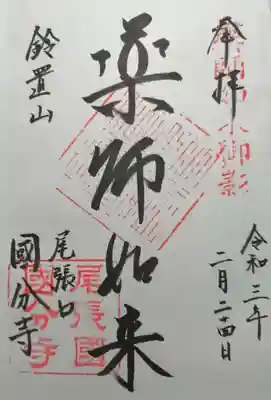 奉拝
御影
令和三年
二月二十四日
薬師如来
鈴置山
尾張囗
國分寺
尾張國
國分寺